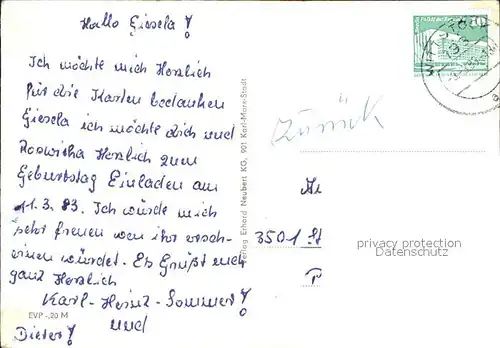 Hallo Giesela!
Ich möchte mich Herzlich
für die Karten bedanken
Giesela ich möchte dich und
Roswitha Herzlich zum
Geburtstag Einladen am
11.3.83. Ich würde mich
sehr freuen wen ihr ersch-
einen würdet. Es Grüßt euch
ganz Herzlich
Karl-Heinz-Sommer!
und
Dieter!
EVP -,20 M
Verlag Erhard Neubert KG, 901 Karl-Marx-Stadt
Zurück
3501
privacy protection
Datenschutz